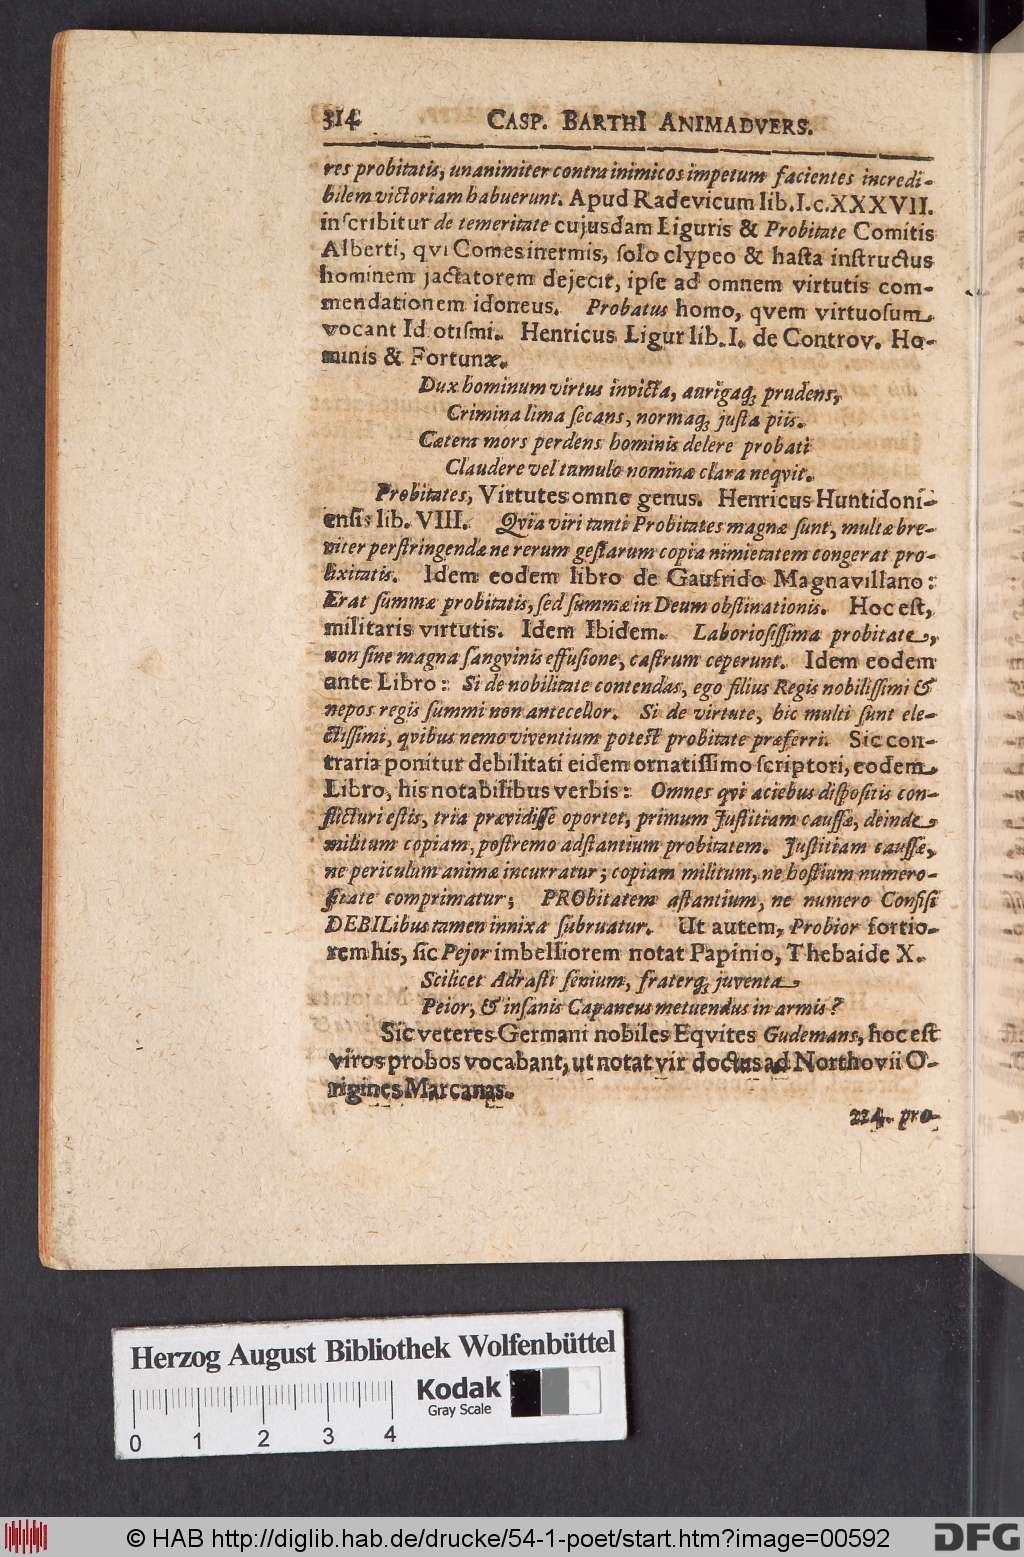 314 CASP. BARTHI ANIMADVERS.
res probitatis, unanimiter contra inimicos impetum facientes incredi-
bilem victoriam habuerunt. Apud Radevicum lib. I. c. XXXVII.
inscribitur de temeritate cujusdam Liguris & Probitate Comitis
Alberti, qvi Comes inermis, solo clypeo & hasta instructus
hominem jactatorem dejecit, ipse ad omnem virtutis com-
mendationem idoneus. Probatus homo, qvem virtuosum
vocant Idiotismi. Henricus Ligur lib. I. de Controv. Ho-
minis & Fortunæ.
Dux hominum virtus invicta, aurigaq; prudens,
Crimina lima secans, normaq; justa piis.
Cætera mors perdens hominis delere probati
Claudere vel tumulo nomina clara neqvit.
Probitates, Virtutes omne genus. Henricus Huntidoni-
ensis lib. VIII. Qvia viri tanti Probitates magnæ sunt, multæ bre-
viter perstringendæ ne rerum gestarum copia nimietatem congerat pro-
lixitatis. Idem eodem libro de Gaufrido Magnavillano:
Erat summæ probitatis, sed summæ in Deum obstinationis. Hoc est,
militaris virtutis. Idem Ibidem. Laboriosissima probitate,
non sine magna sangvinis effusione, castrum ceperunt. Idem eodem
ante Libro: Si de nobilitate contendas, ego filius Regis nobilissimi &
nepos regis summi non antecellor. Si de virtute, hic multi sunt ele-
ctissimi, qvibus nemo viventium potest probitate præferri. Sic con-
traria ponitur debilitati eidem ornatissimo scriptori, eodem
Libro, his notabilibus verbis: Omnes qvi aciebus dispositis con-
flicturi estis, tria prævidisse oportet, primum Justitiam caussæ, deinde
militum copiam, postremo adstantium probitatem. Justitiam caussæ,
ne periculum animæ incurratur; copiam militum, ne hostium numero-
sitate comprimatur; PRObitatem astantium, ne numero Confisi
DEBILibus tamen innixa subruatur. Ut autem, Probior fortio-
rem his, sic Pejor imbelliorem notat Papinio, Thebaide X.
Scilicet Adrasti senium, fraterq; juventa
Peior, & insanis Capaneus metuendus in armis?
Sic veteres Germani nobiles Eqvites Gudemans, hoc est
viros probos vocabant, ut notat vir doctus ad Northovii O-
rigines Marcanas.
224. pro-
Herzog August Bibliothek Wolfenbüttel
Kodak
Gray Scale
0 1 2 3 4
© HAB http://diglib.hab.de/drucke/54-1-poet/start.htm?image=00592
DFG